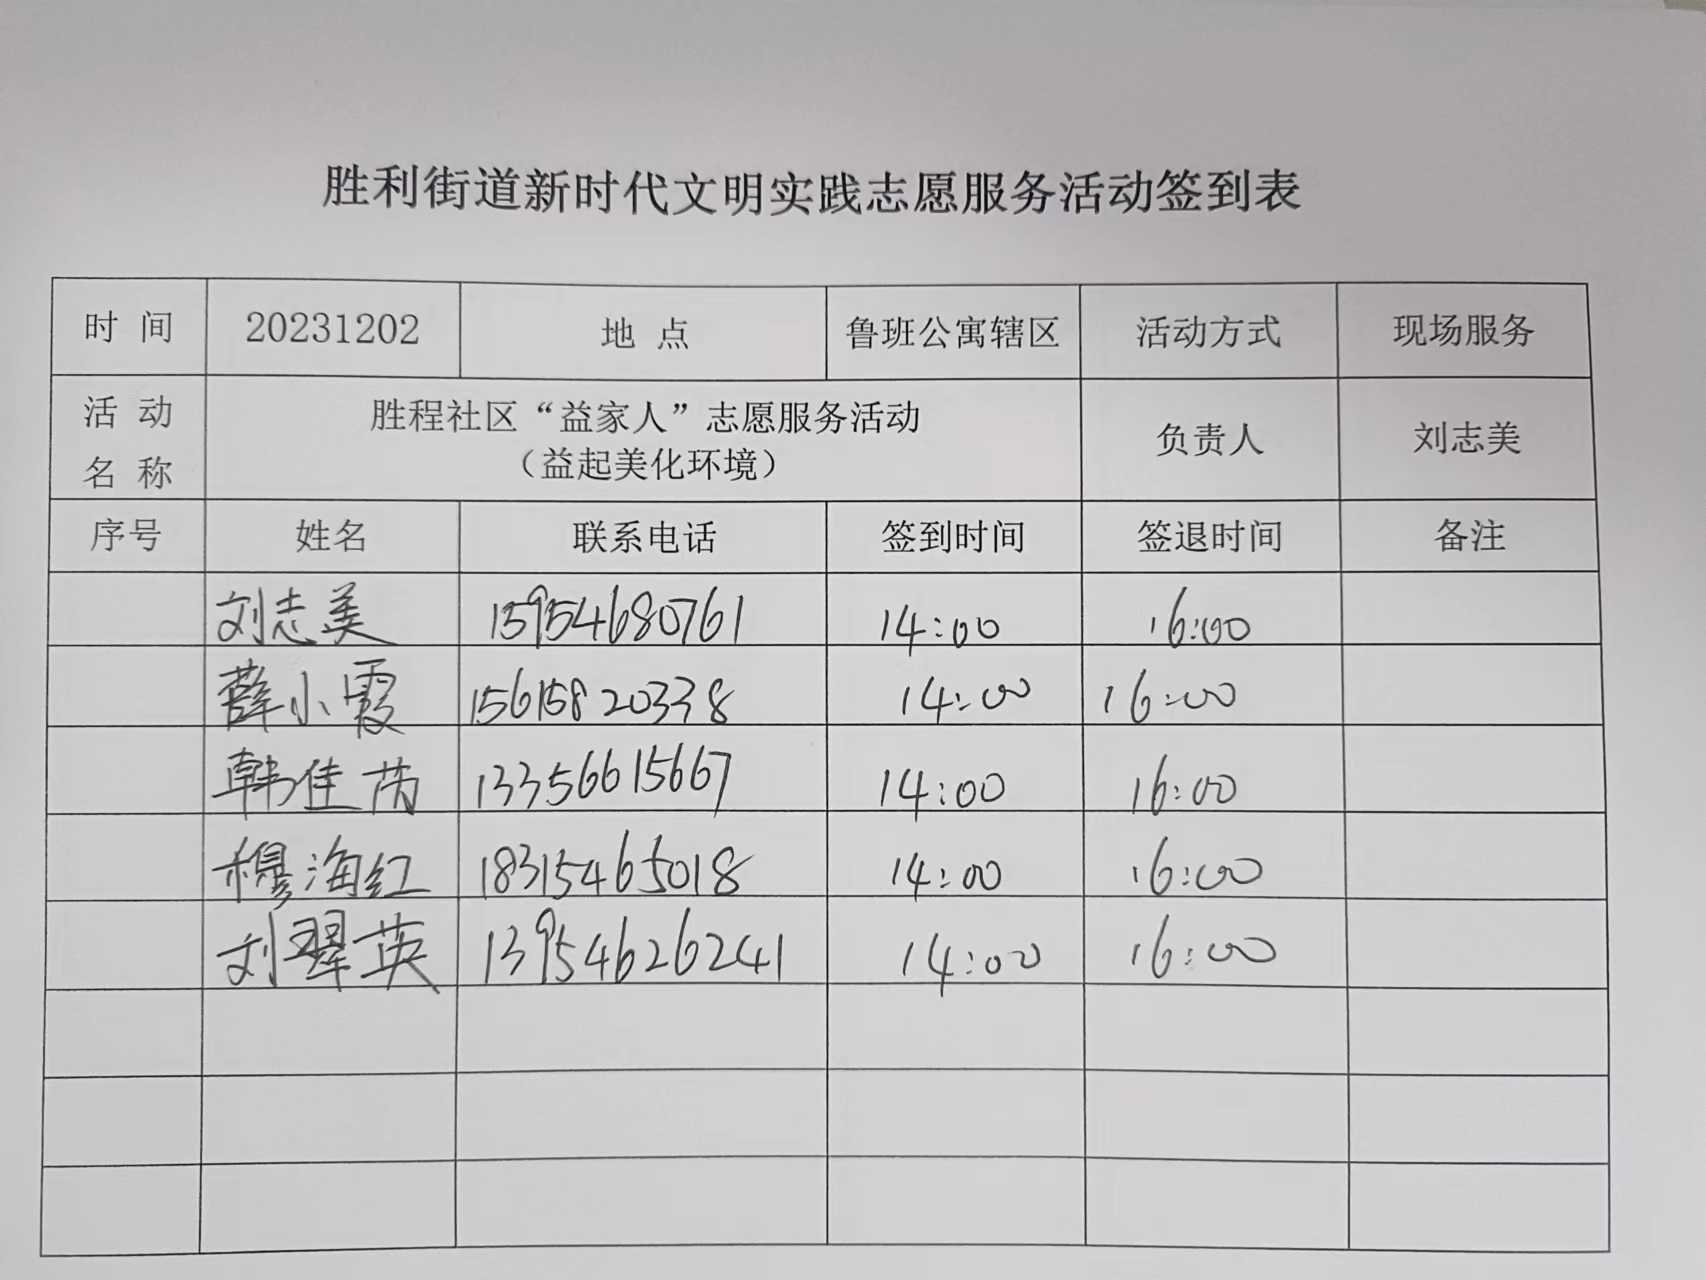 胜利街道新时代文明实践志愿服务活动签到表
时 间 20231202 地 点 鲁班公寓辖区 活动方式 现场服务
活 动 名 称 胜程社区“益家人”志愿服务活动 负责人 刘志美
（益起美化环境）
序号 姓名 联系电话 签到时间 签退时间 备注
刘志美 15954680761 14:00 16:00
薛小霞 15615820338 14:00 16:00
韩佳芮 13356615667 14:00 16:00
穆海红 18315465018 14:00 16:00
刘翠英 13954626241 14:00 16:00